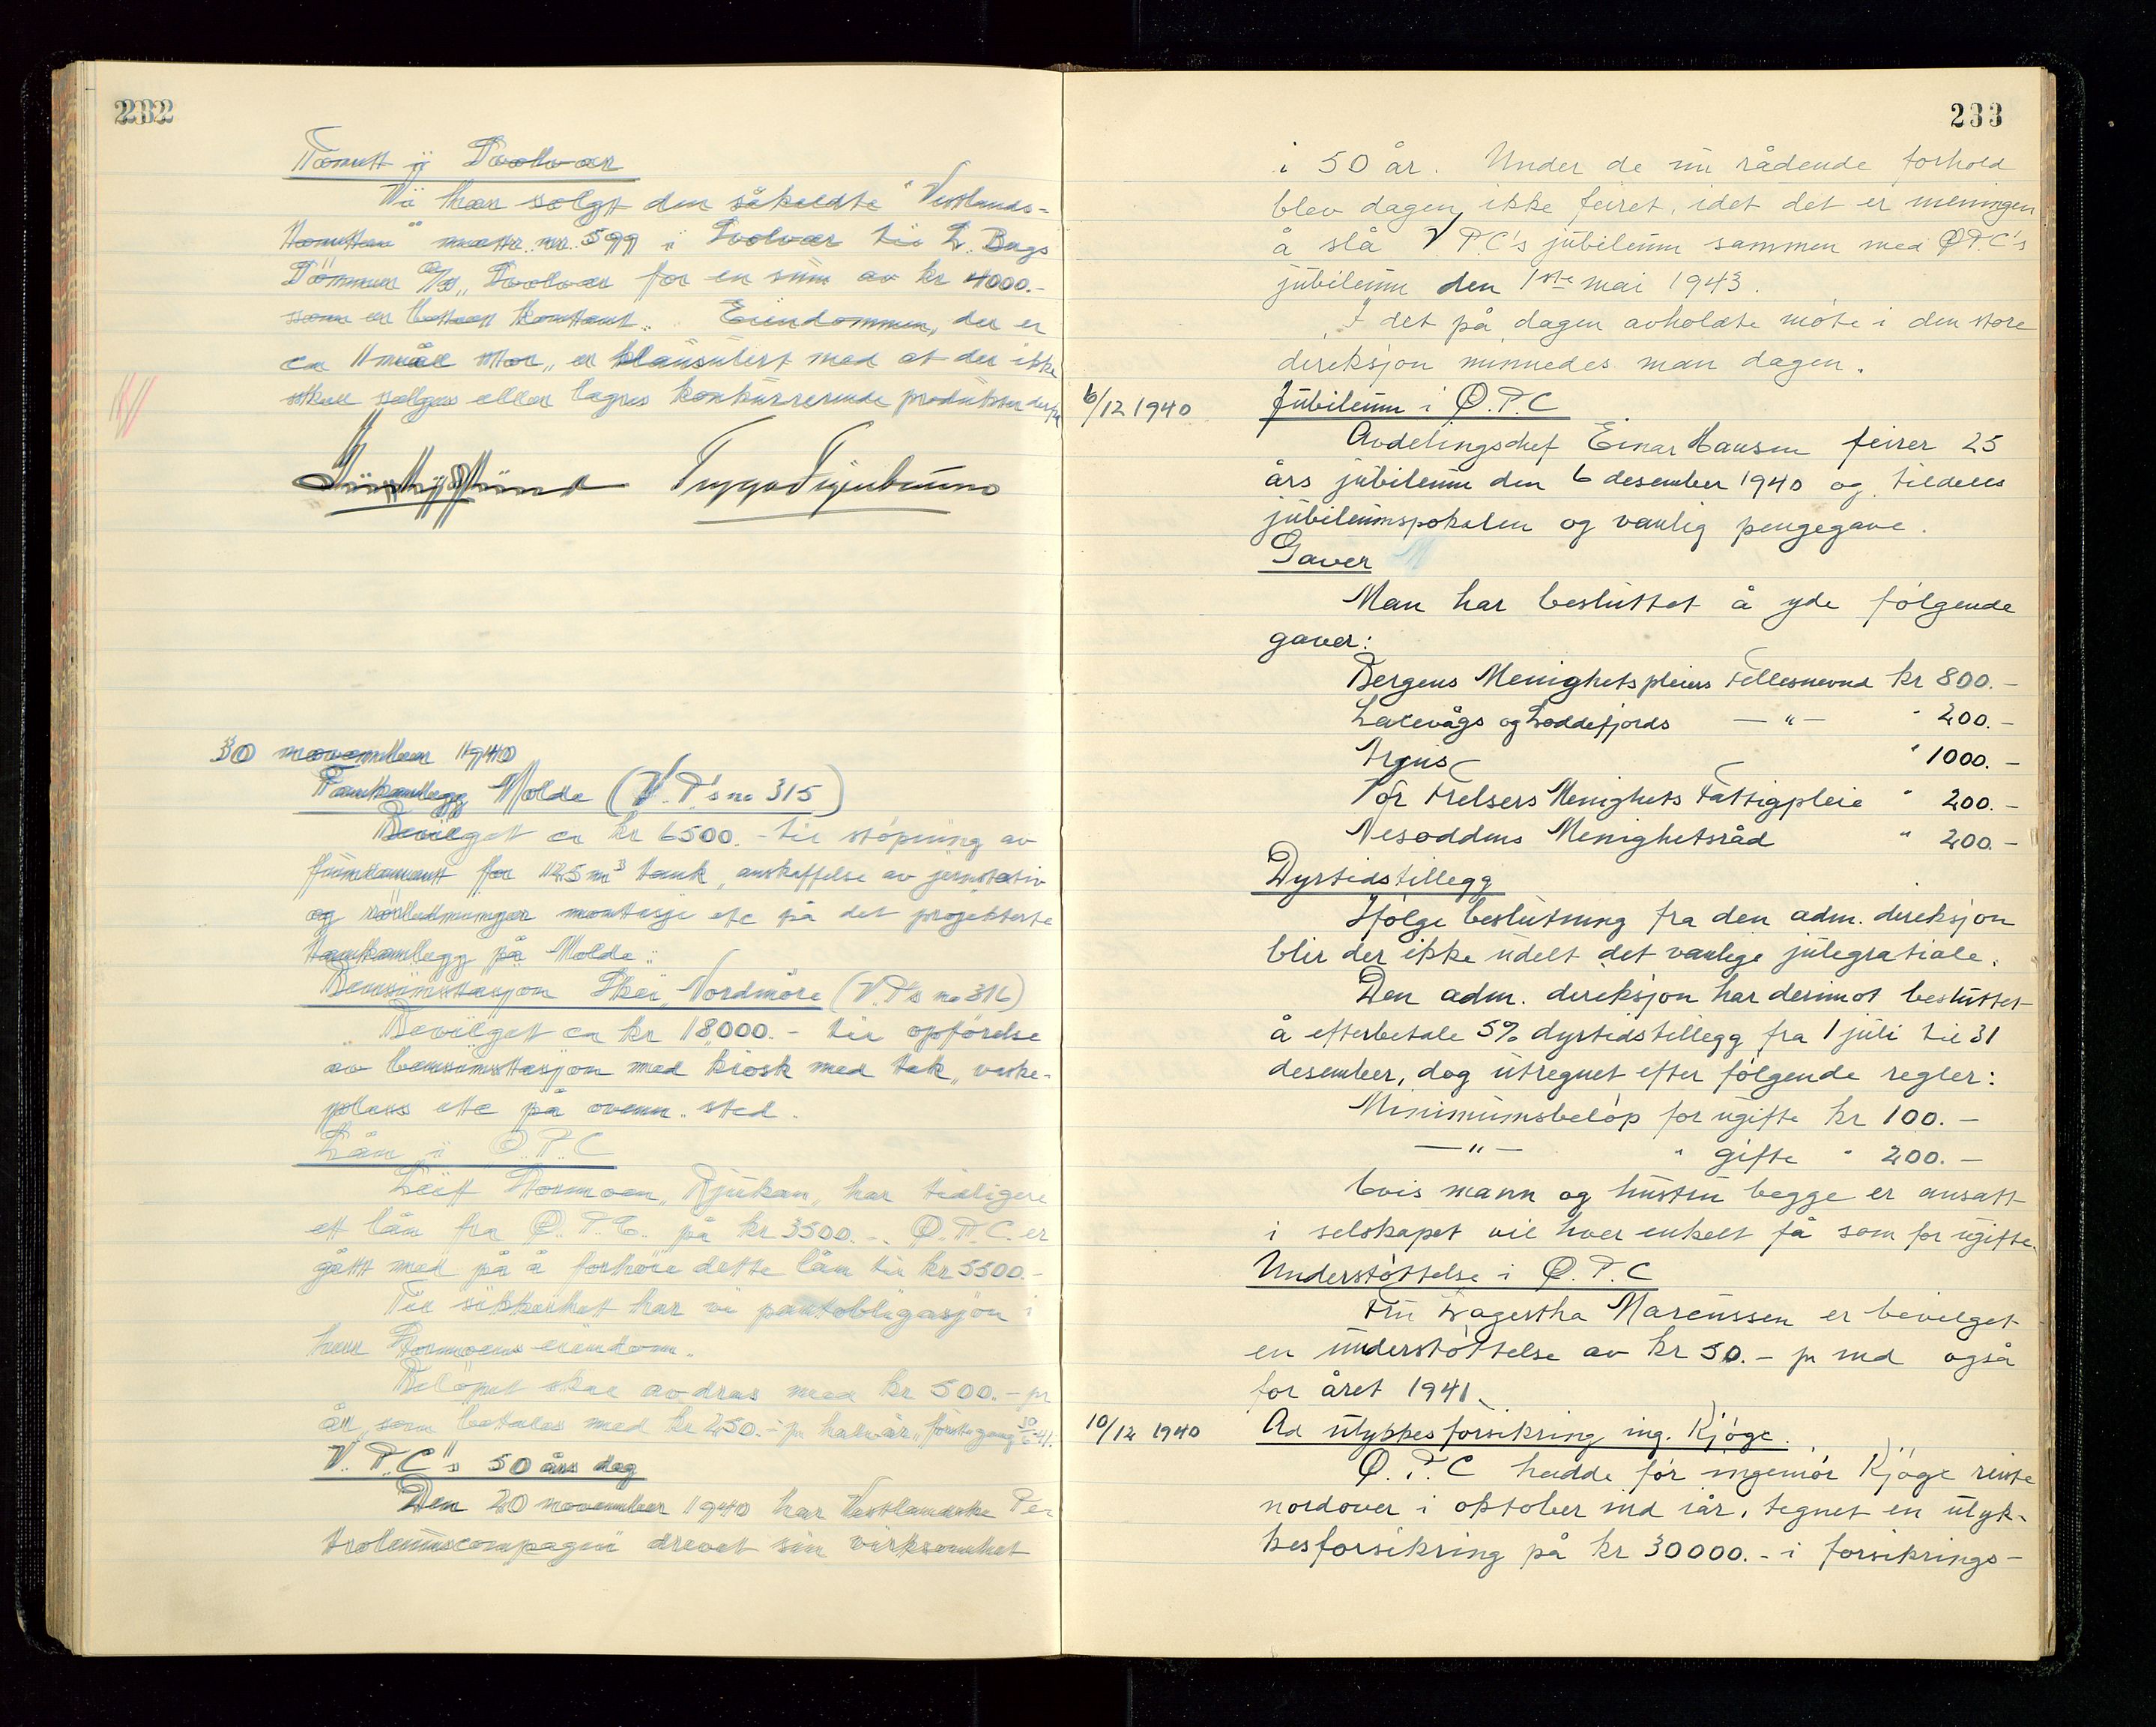 232
Tomt i Svolvær
Vi har solgt den såkaldte "Vestlands-
tomten" matr. nr. 599 i Svolvær til L. Bergs
Sönner A/S, Svolvær for en sum av kr 4000.-
som er betalt kontant. Eiendommen, der er
ca 1 mål stor, er klausulert med at der ikke
skal selges eller lagres konkurrerende produkter derpå
30 november 1940
Tankanlegg Molde (V.P.'s no 315)
Bevilget ca kr 6500.- til stöpning av
fundament for 125 m³ tank, anskaffelse av jernstativ
og rörledninger montasje etc på det projekterte
tankanlegg på Molde.
Bensinstasjon Skei, Nordmöre (V.P's no 316)
Bevilget ca kr 18000.- til opförelse
av bensinstasjon med kiosk med tak, vaske-
plass etc på ovenn. sted.
Lån i Ö.P.C
Leif Stormoen, Rjukan, har tidligere
et lån fra Ö.P.C. på kr 3500.-. Ö.P.C. er
gått med på å forhöie dette lån til kr 5500.-
Til sikkerhet har vi pantobligasjon i
herr Stormoens eiendom.
Belöpet skal avdras med kr 500.- pr
år, som betales med kr 250.- pr halvår, förste gang 30/6-41.
V.P.C's 50 års dag
Den 20 november 1940 har Vestlandske Pe-
troleumscompagni drevet sin virksomhet
233
i 50 år. Under de nu rådende forhold
blev dagen ikke feiret, idet det er meningen
å slå V.P.C's jubileum sammen med Ö.P.C's
jubileum den 1ste mai 1943.
I det på dagen avholdte möte i den store
direksjon minnedes man dagen.
6/12 1940 Jubileum i Ö.P.C
Avdelingschef Einar Hansen feirer 25
års jubileum den 6 desember 1940 og tildeles
jubileumspokalen og vanlig pengegave.
Gaver
Man har besluttet å yde fölgende
gaver:
Bergens Menighetspleiers Fellesnevnd kr 800.-
Laxevågs og Loddefjords —"— " 200.-
Argus " 1000.-
Vör Frelsers Menighets Fattigpleie " 200.-
Nesoddens Menighetsråd " 200.-
Dyrtidstillegg
Ifölge beslutning fra den adm. direksjon
blir der ikke udelt det vanlige julegratiale.
Den adm. direksjon har derimot besluttet
å efterbetale 5% dyrtidstillegg fra 1 juli til 31
desember, dog utregnet efter fölgende regler:
Minimumsbelöp for ugifte kr 100.-
—"— " gifte " 200.-
hvis mann og hustru begge er ansatt
i selskapet vil hver enkelt få som for ugifte.
Understöttelse i Ö.P.C
Fru Lagertha Marenssen er bevilget
en understöttelse av kr 50.- pr md også
for året 1941.
10/12 1940 Ad ulykkesforsikring ing. Kjöge.
Ö.P.C hadde för ingeniör Kjöge reiste
nordover i oktober md iår, tegnet en ulyk-
kesforsikring på kr 30000.- i forsikrings-